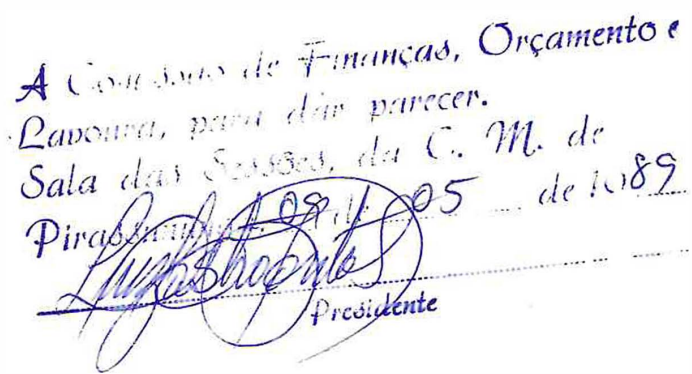 A Comissão de Finanças, Orçamento e
Lavoura, para dár parecer.
Sala das Sessões, da C. M. de
Pirassununga, 09 de 05 de 1989
Presidente